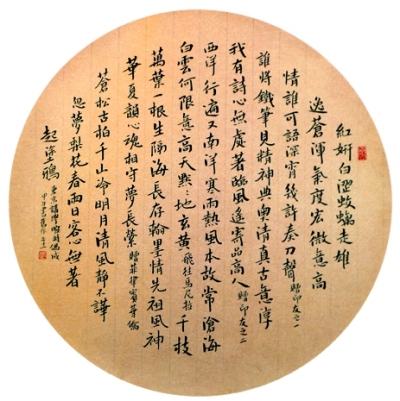 紅妍白澀走雄
逸蒼渾氣度宏微意高
情誰可語深宵幾許奏刀聲 贈印友之一
誰將鐵筆見精神典南清真古意淳
我有詩心無處著臨風遙寄品高人 贈印友之二
西洋行遍又南洋寒雨熱風本故常滄海
白雲何限意高天點點地玄黃 飛杜馬尼拉 千枝
萬葉一根生隔海長存翰墨情先祖風神
華夏韻心魂相守夢長縈 贈菲律賓華僑
蒼松古柏千山冷明月清風靜不譁
忽夢梨花春雨日客心無著
起塗鴉 東京講學偶成